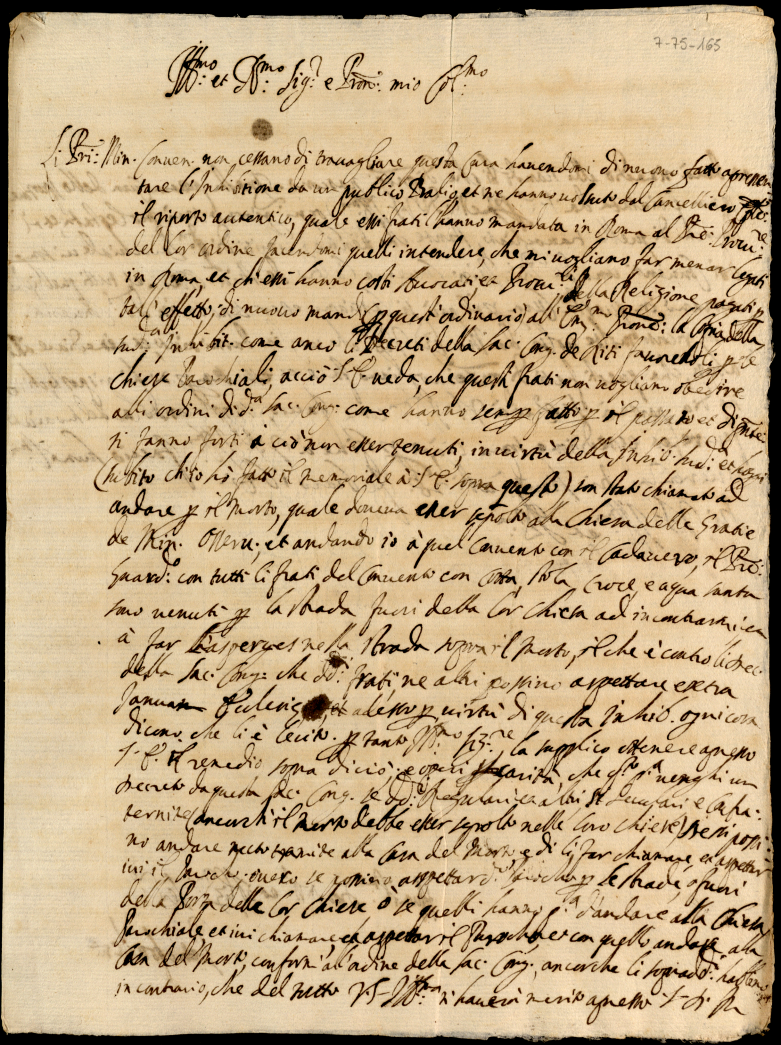 7-75-165
Ill:mo et R:mo Sig:r e Pron: mio Col:mo
Li Pri: Min. Conven. non cessano di travagliare questa Cura havendomi di nuovo fatto apresen
tare l'Inhibitione da un publico Balio, et ne hanno voluto dal Cancelliero
il riporto autentico, quale essi frati l'hanno mandata in Roma al Pre: Procu:re
del lor ordine facendomi quelli intendere, che mi vogliano far menar legati
in Roma, et ch'essi hanno costì Avocati et Procu:ri della Religione pagati p
tal' effetto, di nuovo mando p quest' ordinario all' Em:mo Prone: la Copia della
sud:a Inhibit. come anco li Decreti della Sac: Cong. de Riti favorevoli p le
chiese Parochiali, acciò S. E. veda, che questi frati non vogliano obedire
alli ordini di d:a Sac: Cong: come hanno semp fatto p il passato et
si fanno forti à ciò non esser tenuti, in virtù della Inhib. sud:a et hoggi
(subito ch'io hò fatto il memoriale à S. E. sopra questo) son stato chiamato ad
andare p il Morto, quale doveva esser sepolto alla Chiesa delle Gratie
de Min. Osserv., et andando io à quel Convento con il Cadavero, il Pre:
Guard:o con tutti li frati del Convento con Cotta, Stola, Croce, e aqua santa
sono venuti p la strada fuori della lor Chiesa ad incontrarmi, et
à far l'asperges nella strada sopra il Morto, il che è contro li decr:
della Sac: Cong: che dd:i frati, ne altri possino aspettare extra
Januam Ecclesiæ, et adesso p virtù di questa Inhib. ogni cosa
dicono, che li è lecito. p tanto Ill:mo Sig:re la supplico ottenere apresso
S. E. il remedio sopra di ciò, e operi carità, che venghi un
decreto da questa Sac: Cong. se dd:i Regulari et altri Secolari e Confra-
ternite (ancorchè il Morto debba esser sepolto nelle loro chiese) se si possi-
no andare recto tramite alla Casa del Morto, e di lì far chiamare et aspettar
ivi il Parocho, overo se possino aspettar d:o Parocho p le strade, ò fuori
della Porta delle lor Chiese ò se quelli hanno p:a d'andare alla Chiesa
Parochiale et ivi chiamare, et aspettar il Parocho, et con quello andare alla
Casa del Morto, conform' all' ordine della Sac: Cong., ancorche li sopradd:i habbino
in contrario, che del tutto V. S. Ill:ma n'haverà merito apresso S. D. M.